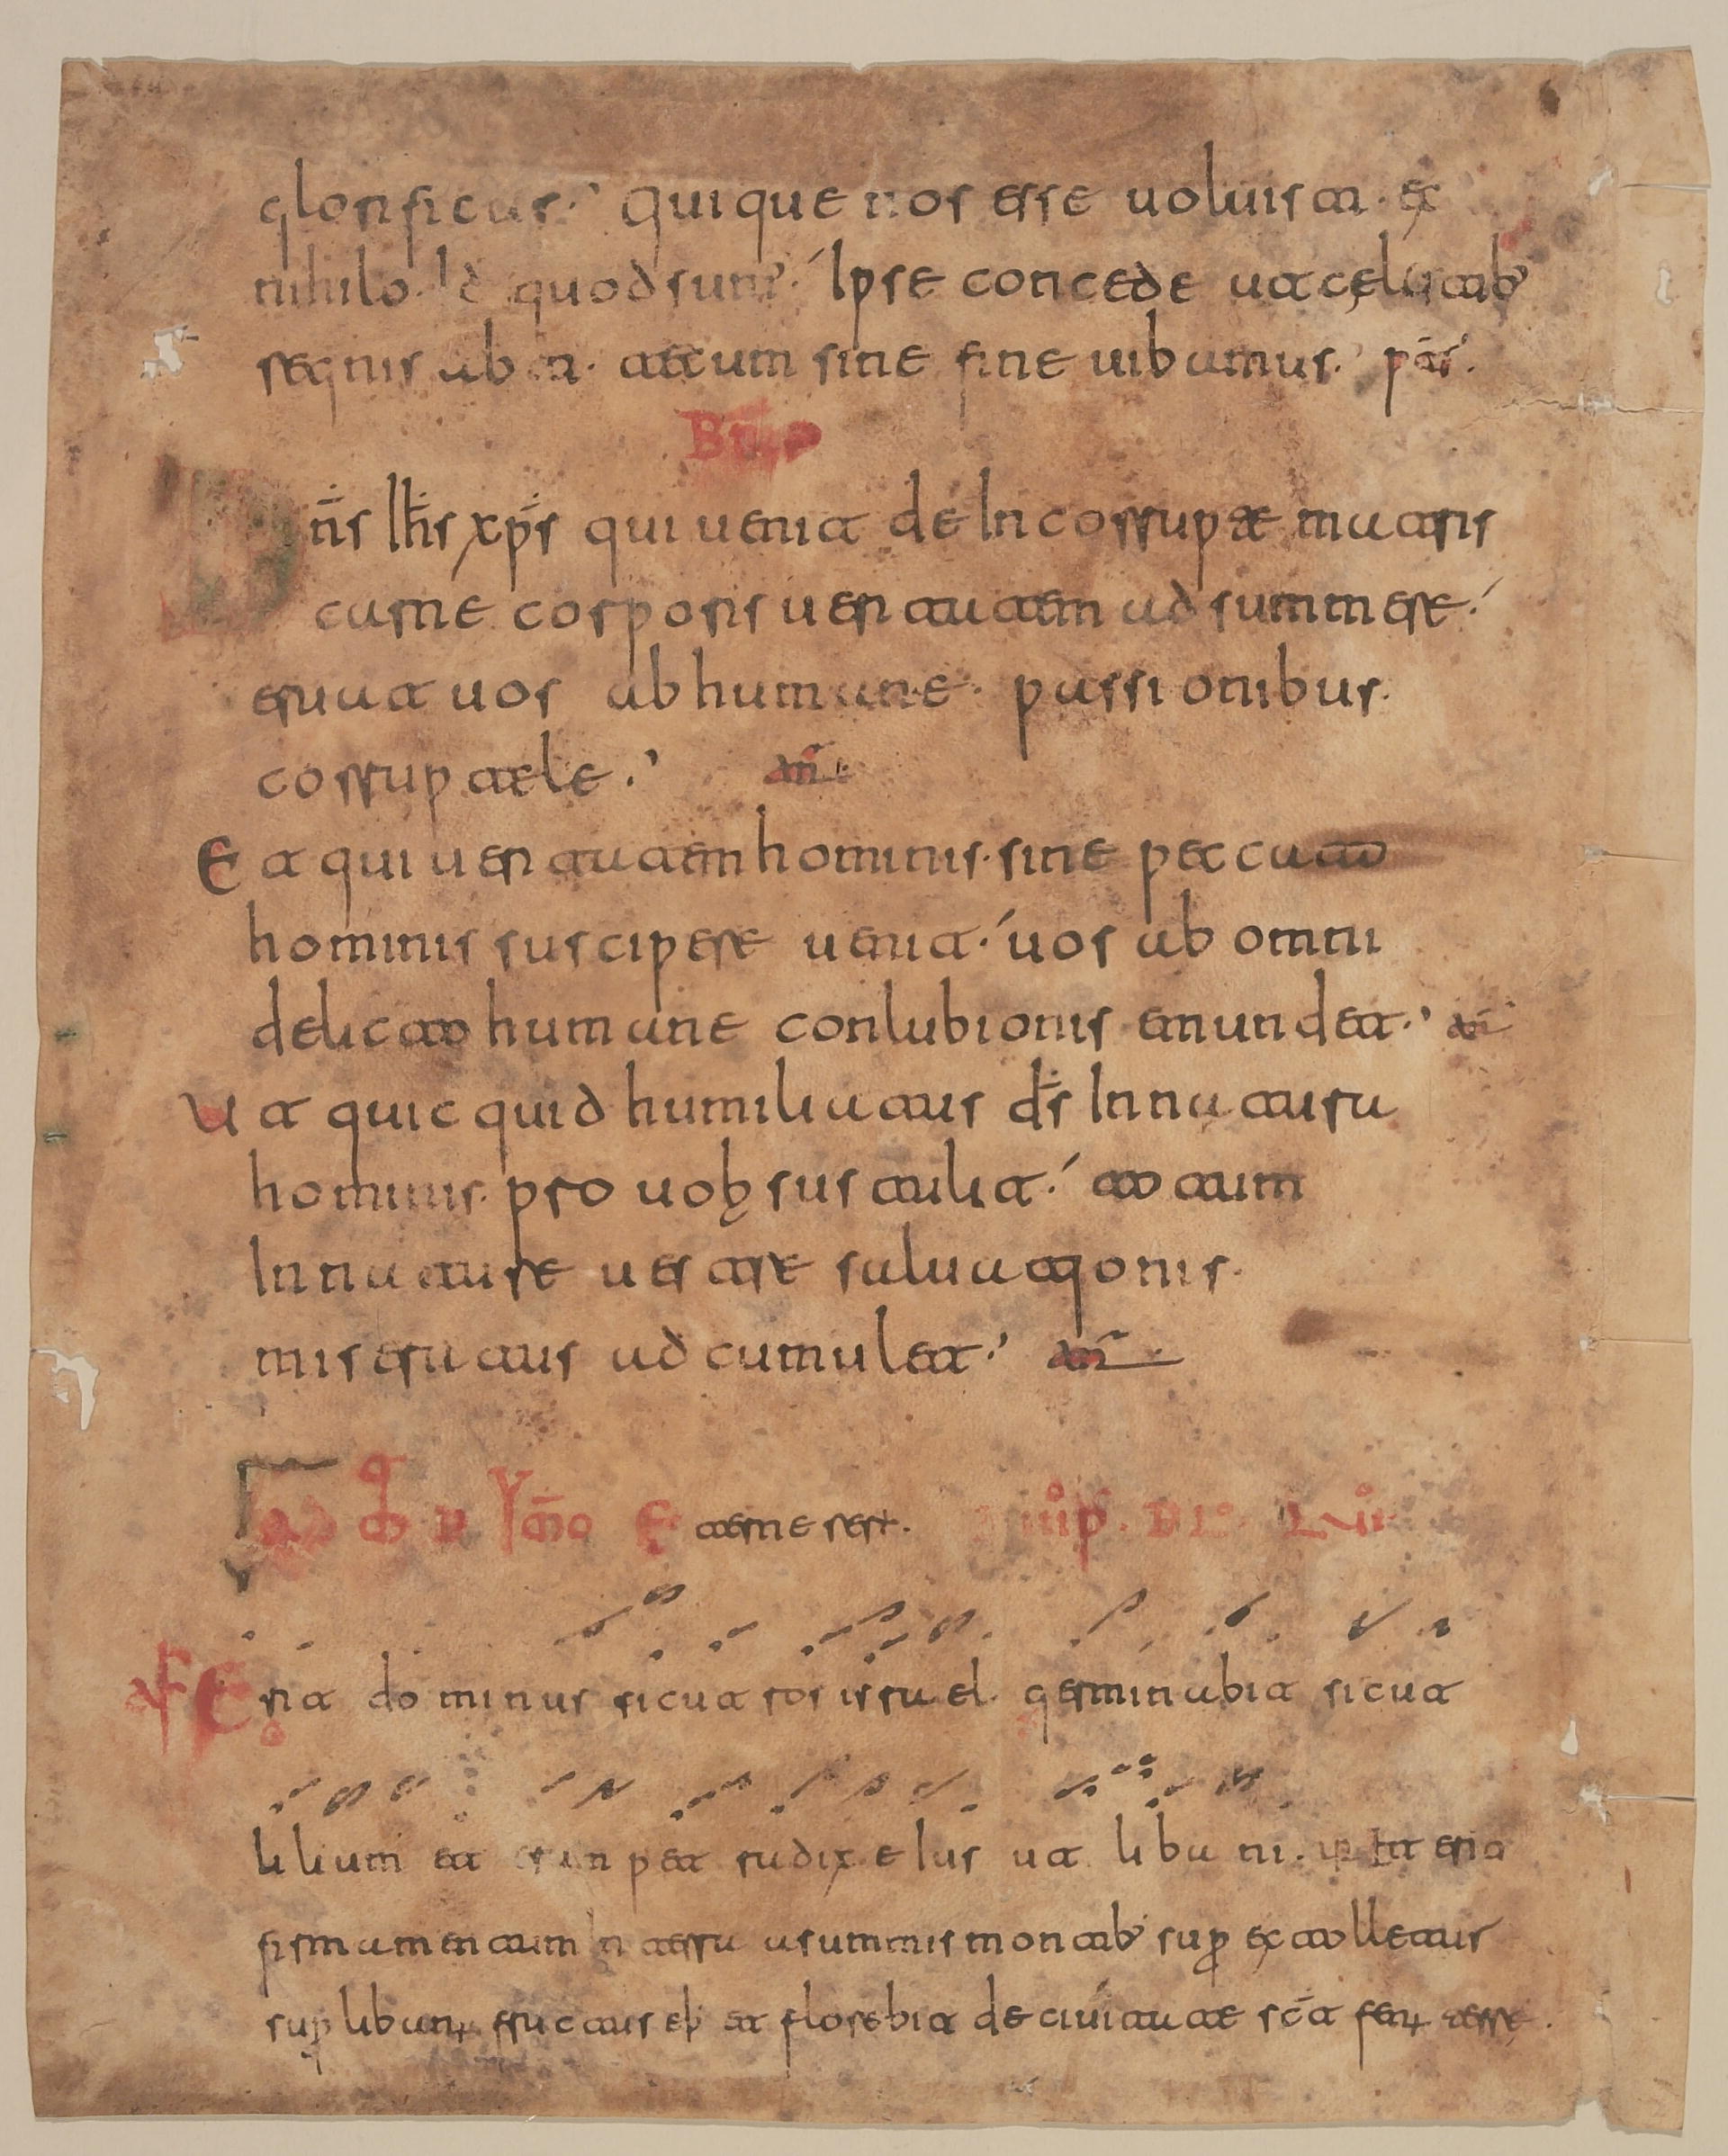 glorificas. Quique nos esse voluisti. ex
nihilo. Id quod sumus. Ipse concede ut celestib
regnis ab in eternum sine fine vibamus. ptr.
Bndo
Dns Ihs xps qui venit de Incorruptę matris
carne corporis veritatem adsummere.
eruat vos ab humane. passionibus
corruptele. amn
Et qui veritatem hominis. sine peccato
hominis suscipere venit. vos ab omni
delicto humane conlubionis emundet. amn
Ut quicquid humilitatis ds In natura
hominis. pro vobis sustulit. totum
In nature vestre salvationis.
miseratus adcumulet. amn
terne rert.
Erit dominus sicut ros israel. germinabit sicut
lilium et erumpet radix eius ut libani. erit
firmamentum In terra asummis montib sup extolletur
sup libanum fructus ei et florebit de civitate sca fenum terre.